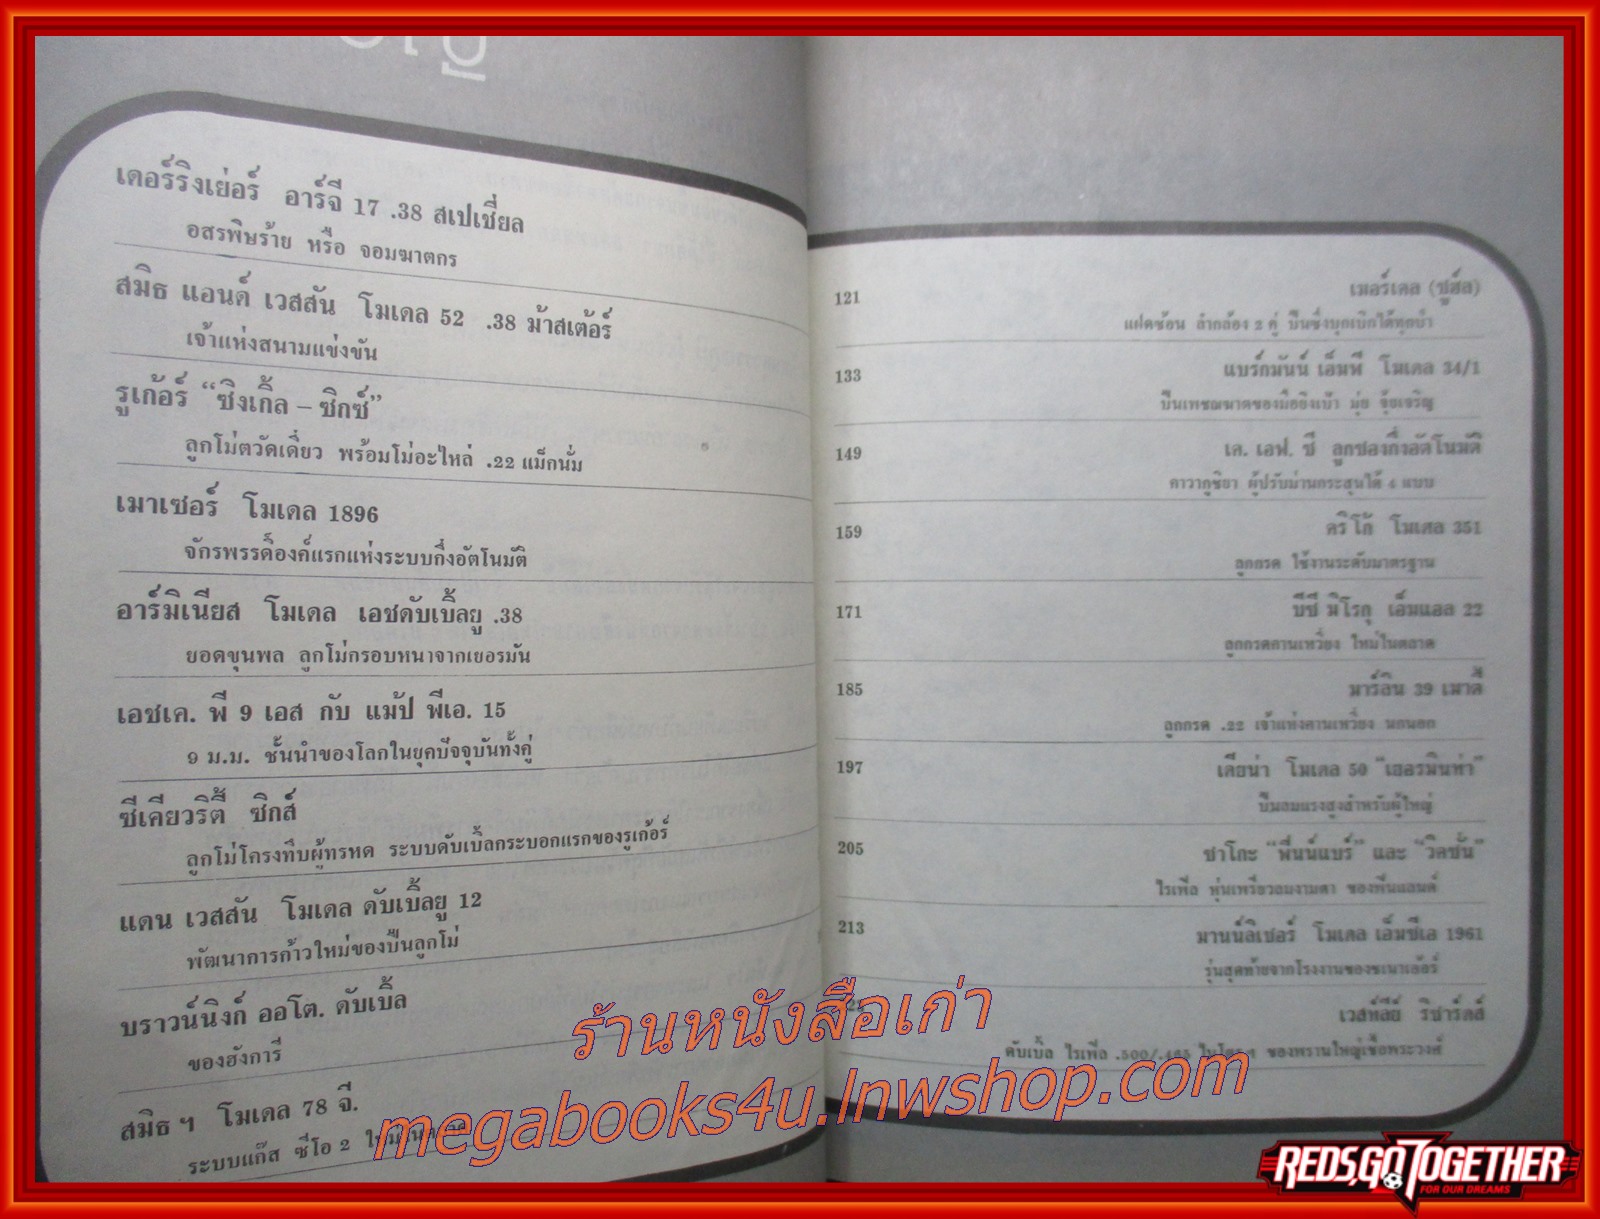 เดอร์ริงเย่อร์ อาร์จี 17 .38 สเปเชี่ยล
อสรพิษร้าย หรือ จอมฆาตกร
สมิธ แอนด์ เวสสัน โมเดล 52 .38 ม้าสเต้อร์
เจ้าแห่งสนามแข่งขัน
รูเก้อร์ “ซิงเกิ้ล – ซิกซ์”
ลูกโม่ตวัดเดี่ยว พร้อมโม่อะไหล่ .22 แม็กนั่ม
เมาเซอร์ โมเดล 1896
จักรพรรดิ์องค์แรกแห่งระบบกึ่งอัตโนมัติ
อาร์มิเนียส โมเดล เอชดับเบิ้ลยู .38
ยอดขุนพล ลูกโม่กรอบหนาจากเยอรมัน
เอชเค. พี 9 เอส กับ แม้ป พีเอ. 15
9 ม.ม. ชั้นนำของโลกในยุคปัจจุบันทั้งคู่
ซีเคียวริตี้ ซิกส์
ลูกโม่โครงทึบผู้ทรหด ระบบดับเบิ้ลกระบอกแรกของรูเก้อร์
แดน เวสสัน โมเดล ดับเบิ้ลยู 12
พัฒนาการก้าวใหม่ของปืนลูกโม่
บราวน์นิงก์ ออโต. ดับเบิ้ล
ของฮังการี
สมิธ ฯ โมเดล 78 จี.
ระบบแก๊ส ซีโอ 2
121 เมอร์เคล (ซูฮ์ล)
แฝดซ้อน ลำกล้อง 2 คู่ ปืนซึ่งบุกเบิกได้ทุกป่า
133 แบร์กมันน์ เอ็มพี โมเดล 34/1
ปืนเพชฌฆาตของมือยิงเป้า มุ่ย จุ้ยเจริญ
149 เค. เอฟ. ซี ลูกซองกึ่งอัตโนมัติ
คาวากูชิยา ผู้ปรับม่านกระสุนได้ 4 แบบ
159 คริโก้ โมเดล 351
ลูกกรด ใช้งานระดับมาตรฐาน
171 บีซี มิโรกุ เอ็มแอล 22
ลูกกรดคานเหวี่ยง ใหม่ในตลาด
185 มาร์ลิน 39 เมาตี้
ลูกกรด .22 เจ้าแห่งคานเหวี่ยง นกนอก
197 เดียน่า โมเดล 50 “เฮอรมินท่า”
ปืนลมแรงสูงสำหรับผู้ใหญ่
205 ซาโกะ “ฟินน์แบร์” และ “วิคซั่น”
ไรเฟิล หุ่นเพรียวลมงามตา ของฟินแลนด์
213 มานน์ลิเชอร์ โมเดล เอ็มซีเอ 1961
รุ่นสุดท้ายจากโรงงานของเชนาเอ้อร์
เวสท์ลีย์ ริชาร์ดส์
ดับเบิ้ล ไรเฟิล .500/.465 ของพรานใหญ่เชื้อพระวงศ์
ร้านหนังสือเก่า
megabooks4u.lnwshop.com
REDS,GO TOGETHER
FOR OUR DREAMS